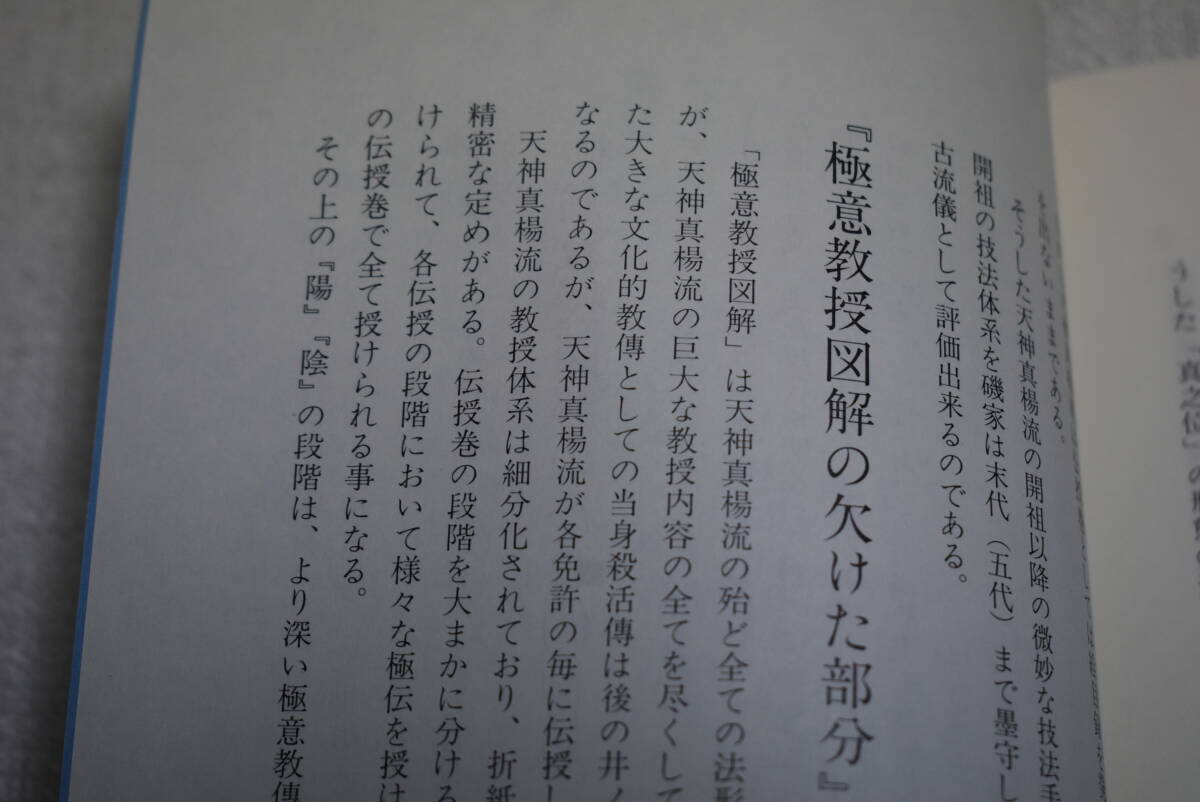 を出ないままである。
そうした天神真楊流の開祖以降の微妙な技法手
開祖の技法体系を磯家は末代（五代）まで墨守し
古流儀として評価出来るのである。
『極意教授図解の欠けた部分』
「極意教授図解」は天神真楊流の殆ど全ての法形
が、天神真楊流の巨大な教授内容の全てを尽くして
た大きな文化的教傳としての当身殺活傳は後の井ノ
なるのであるが、天神真楊流が各免許の毎に伝授し
天神真楊流の教授体系は細分化されており、折紙
精密な定めがある。伝授巻の段階を大まかに分ける
けられて、各伝授の段階において様々な極伝を授け
の伝授巻で全て授けられる事になる。
その上の『陽』『陰』の段階は、より深い極意教傳